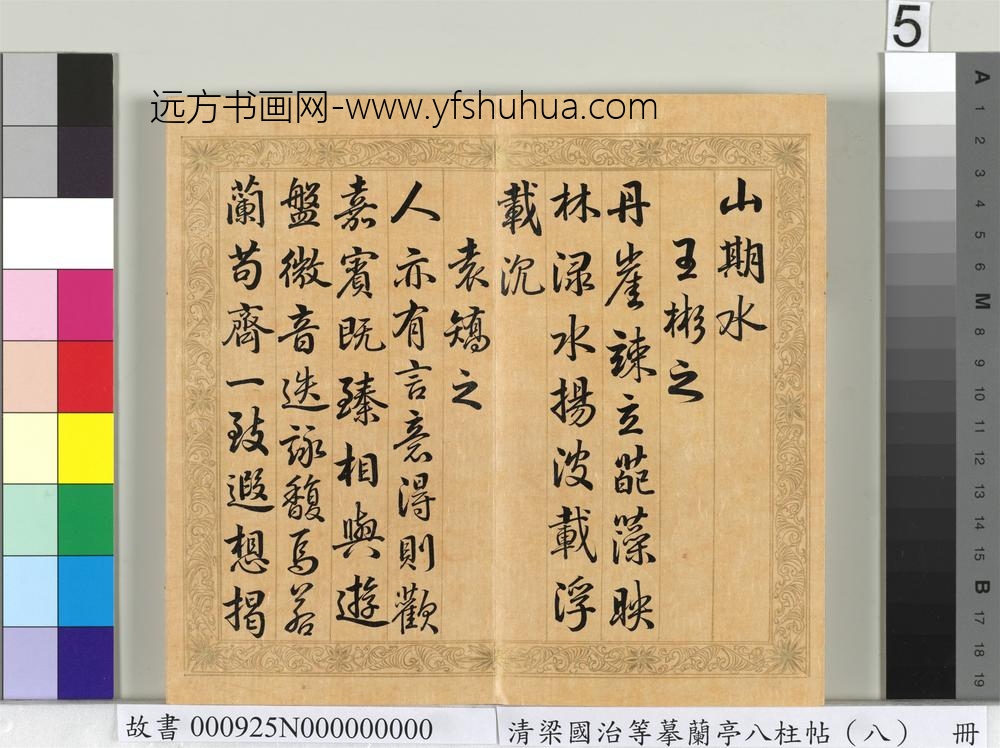 5
远方书画网-www.yfshuhua.com
山期水
王彬之
丹崖竦立葩藻映
林渌水揚波載浮
載沉
袁矯之
人亦有言意得則歡
嘉賓既臻相與遊
盤微音迭詠馥焉若
蘭苟齊一致遐想揭
A
1
2
3
4
5
6
M
8
9
10
11
12
13
14
15
B
17
18
19
故書 000925N000000000
清梁國治等摹蘭亭八柱帖（八） 冊